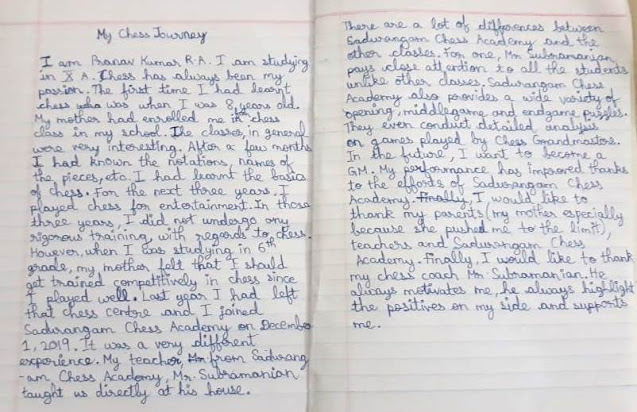 My Chess Journey
I am Pranav Kumar R.A. I am studying
in X A. Chess has always been my
passion. The first time I had learnt
chess was when I was 8 years old.
My mother had enrolled me in chess
class in my school. The classes, in general
were very interesting. After a few months
I had known the notations, names of
the pieces, etc. I had learnt the basics
of chess. For the next three years, I
played chess for entertainment. In those
three years, I did not undergo any
rigorous training, with regards to chess.
However, when I was studying in 6th
grade, my mother felt that I should
get trained competitively in chess since
I played well. Last year I had left
that chess centre and I joined
Sadurangam Chess Academy on December
1, 2019. It was a very different
experience. My teacher, from Sadurang
-am Chess Academy, Mr. Subramanian
taught us directly at his house.
There are a lot of differences between
Sadurangam Chess Academy and the
other classes. For one, Mr. Subramanian
pays close attention to all the students
unlike other classes. Sadurangam Chess
Academy also provides a wide variety of
opening, middlegame and endgame puzzles.
They even conduct detailed analysis
on games played by Chess Grandmasters.
In the future, I want to become a
GM. My performance has improved thanks
to the efforts of Sadurangam Chess
Academy. Finally, I would like to
thank my parents (my mother especially
because she pushed me to the limit),
teachers and Sadurangam Chess
Academy. Finally, I would like to thank
my chess coach Mr. Subramanian. He
always motivates me, he always highlight
the positives on my side and supports
me.